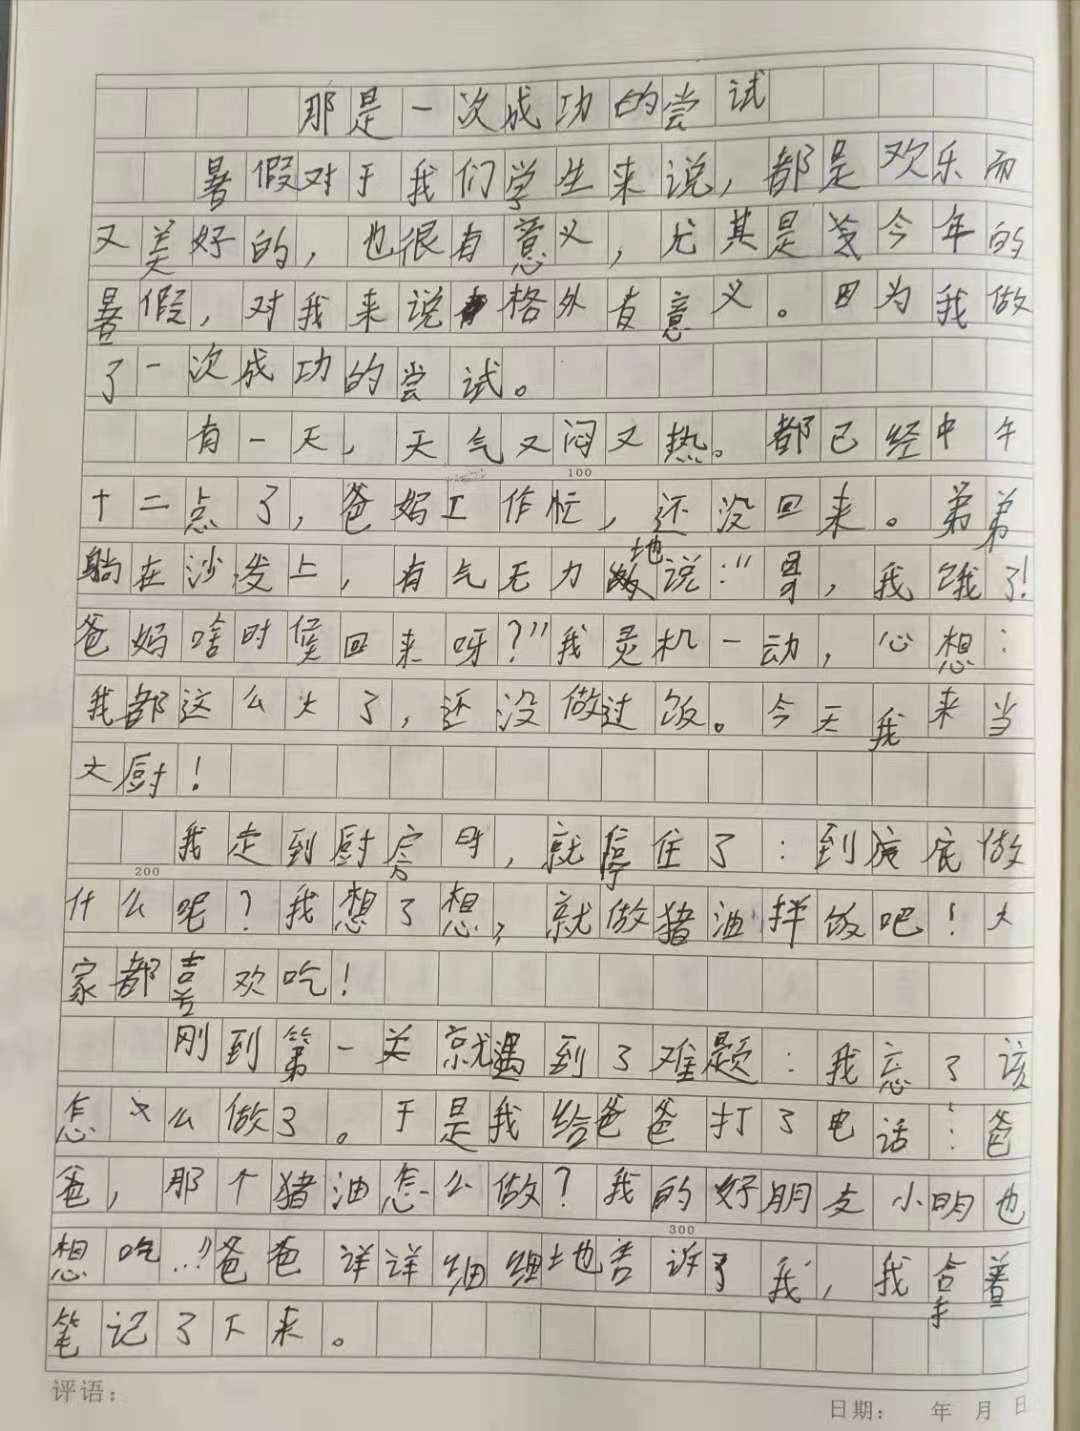 那是一次成功的尝试
暑假对于我们学生来说，都是欢乐而
又美好的，也很有意义，尤其是今年的
暑假，对我来说格外有意义。因为我做
了一次成功的尝试。
有一天，天气又闷又热。都已经中午
100
十二点了，爸妈工作忙，还没回来。弟弟
躺在沙发上，有气无力地说："哥，我饿了!
爸妈啥时候回来呀？"我灵机一动，心想：
我都这么大了，还没做过饭。今天我来当
大厨！
我走到厨房时，就停住了：到底做
200
什么呢？我想了想，就做猪油拌饭吧！大
家都喜欢吃！
刚到第一关就遇到了难题：我忘了该
怎么做了。于是我给爸爸打了电话："爸
爸，那个猪油怎么做？我的好朋友小明也
300
想吃…"爸爸详详细细地告诉了我，我拿着
笔记了下来。
评语：
日期： 年 月 日